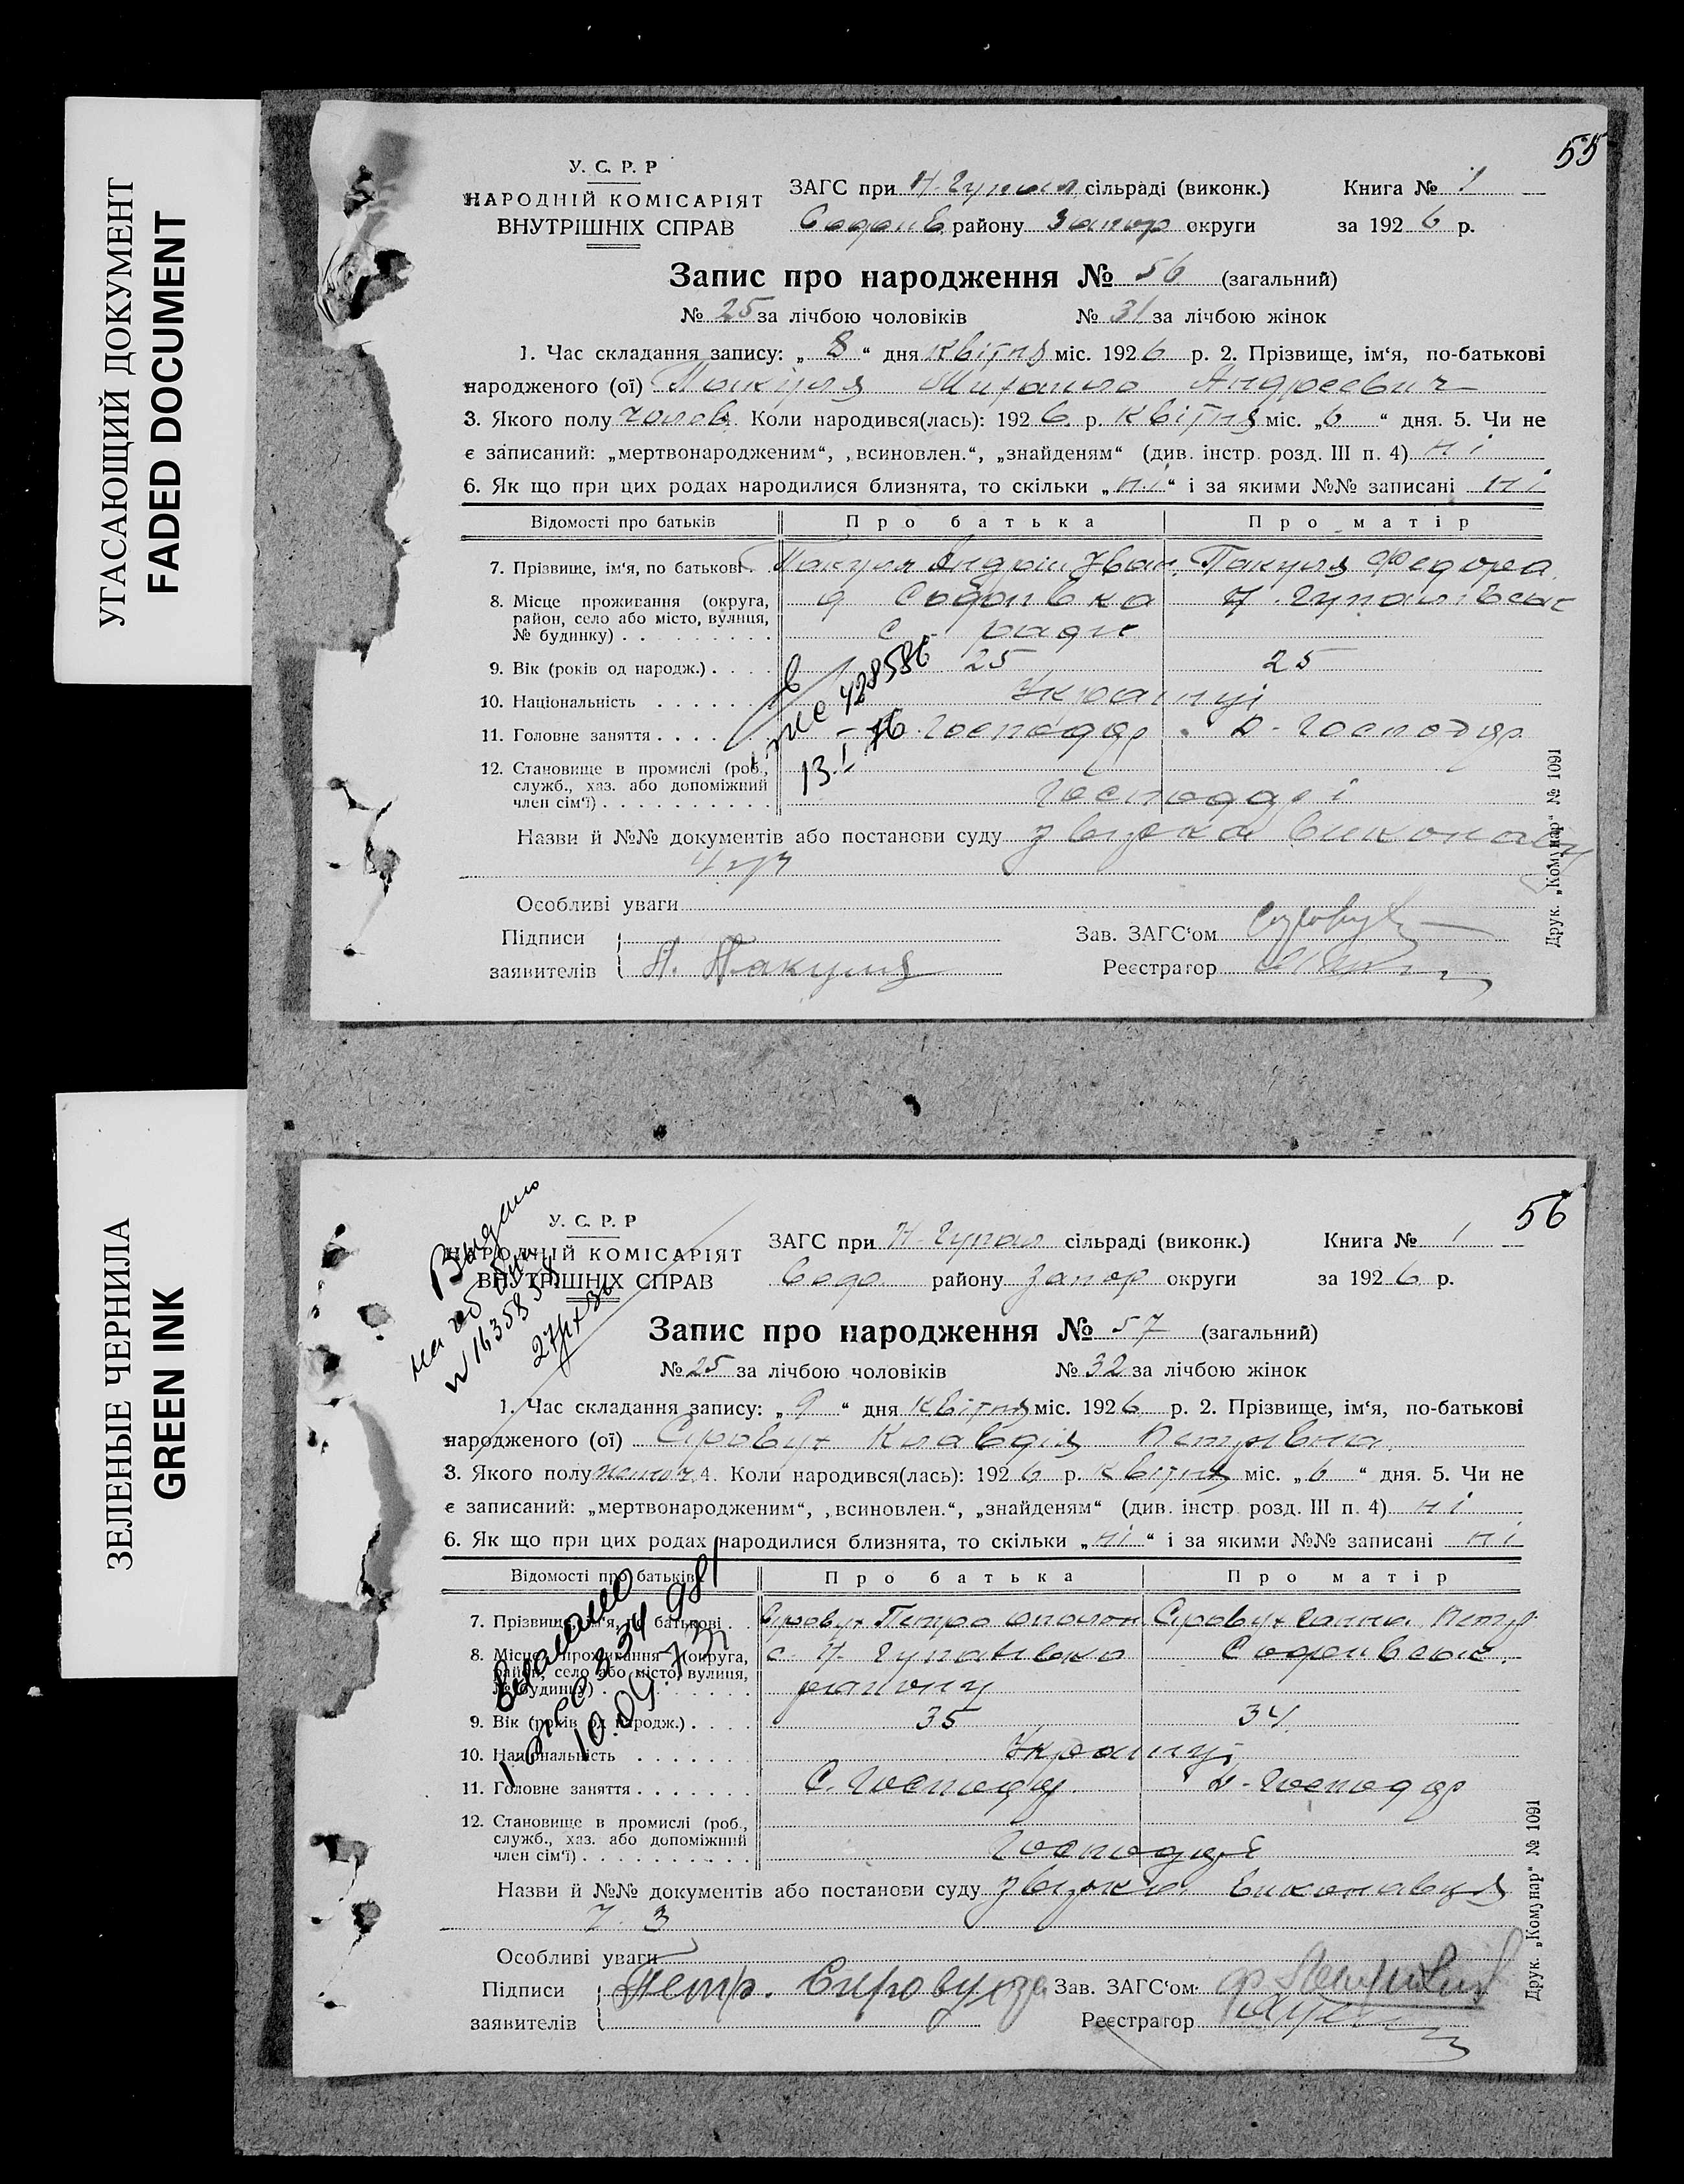 УГАСАЮЩИЙ ДОКУМЕНТ
FADED DOCUMENT
55
У. С. Р. Р
НАРОДНІЙ КОМІСАРІЯТ
ВНУТРІШНІХ СПРАВ
ЗАГС при сільраді (виконк.) Книга № 1
району Запор округи за 1926 р.
Запис про народження № 56 (загальний)
№ 25 за лічбою чоловіків № 31 за лічбою жінок
1. Час складання запису: „ 8 “ дня квітня міс. 1926 р. 2. Прізвище, ім‘я, по-батькові
народженого (ої) Пакуля Михайло Андреевич
3. Якого полу чолов. Коли народився(лась): 1926 р. квітня міс. „6“ дня. 5. Чи не
є записаний: „мертвонародженим“, „всиновлен.“, „знайденям“ (див. інстр. розд. III п. 4) ні
6. Як що при цих родах народилися близнята, то скільки „ні“ і за якими №№ записані ні
Відомості про батьків Про батька Про матір
7. Прізвище, ім‘я, по батькові . Пакуля Андрій Іван. Пакуля Федора
8. Місце проживання (округа,
район, село або місто, вулиця,
№ будинку) . . . . . . . . .
9. Вік (років од народж.) . . . . 25 25
10. Національність . . . . . . Українці
11. Головне заняття . . . . господар Д. господар
12. Становище в промислі (роб.,
служб., хаз. або допоміжний
член сім‘ї) . . . . . . . . . . господарі
428586
13.I
Назви й №№ документів або постанови суду
Особливі уваги
Підписи
заявителів А. Пакуля
Зав. ЗАГС‘ом
Реєстратор
Друк. „Комунар“ № 1091
ЗЕЛЕНЫЕ ЧЕРНИЛА
GREEN INK
56
Видано
У. С. Р. Р
НАРОДНІЙ КОМІСАРІЯТ
ВНУТРІШНІХ СПРАВ
ЗАГС при сільраді (виконк.) Книга № 1
району Запор округи за 1926 р.
Запис про народження № 57 (загальний)
№ 25 за лічбою чоловіків № 32 за лічбою жінок
1. Час складання запису: „ 9 “ дня квітня міс. 1926 р. 2. Прізвище, ім‘я, по-батькові
народженого (ої) Сировух Клавдія Петрівна
3. Якого полу 4. Коли народився(лась): 1926 р. квітня міс. „6“ дня. 5. Чи не
є записаний: „мертвонародженим“, „всиновлен.“, „знайденям“ (див. інстр. розд. III п. 4) ні
6. Як що при цих родах народилися близнята, то скільки „ні“ і за якими №№ записані ні
Відомості про батьків Про батька Про матір
7. Прізвище, ім‘я, по батькові . . Сировух Петро Сировух Ганна Петр
8. Місце проживання (округа,
район, село або місто, вулиця,
№ будинку) . . . . . . . . . району
9. Вік (років од народж.) . . . . 35 34
10. Національність . . . . . . Українці
11. Головне заняття . . . . . . . С. господар Д. господар
12. Становище в промислі (роб.,
служб., хаз. або допоміжний
член сім‘ї) . . . . . . . . . .
Назви й №№ документів або постанови суду виконавця
Ч. 3
Особливі уваги
Підписи
заявителів Петр.
Зав. ЗАГС‘ом
Реєстратор
Друк. „Комунар“ № 1091